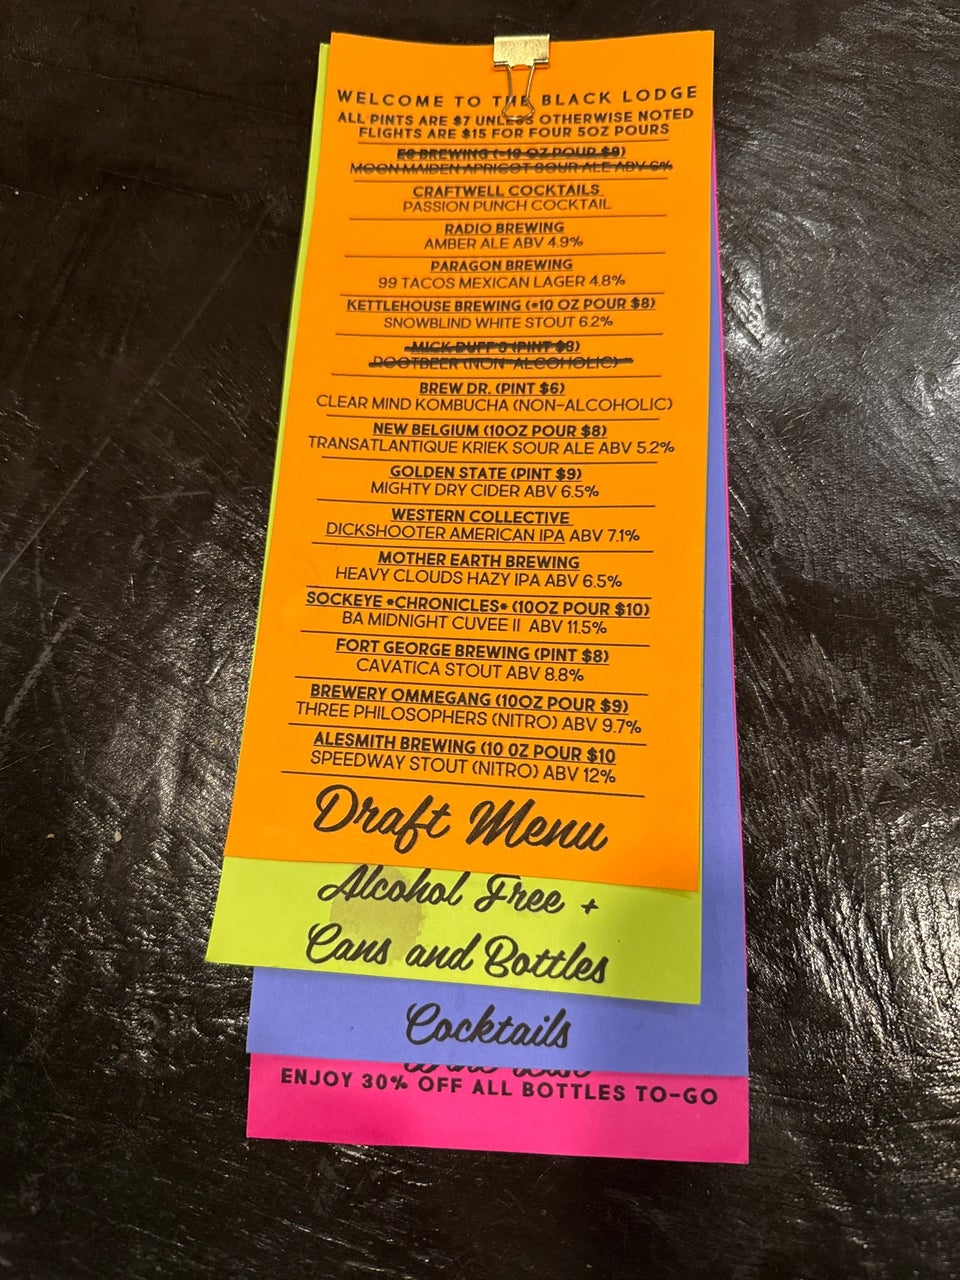 WELCOME TO THE BLACK LODGE
ALL PINTS ARE $7 UNLESS OTHERWISE NOTED
FLIGHTS ARE $15 FOR FOUR 5OZ POURS
BREWING (~10 OZ POUR $8)
MOON MAIDEN APRICOT SOUR ALE ABV 6%
CRAFTWELL COCKTAILS
PASSION PUNCH COCKTAIL
RADIO BREWING
AMBER ALE ABV 4.9%
PARAGON BREWING
99 TACOS MEXICAN LAGER 4.8%
KETTLEHOUSE BREWING (*10 OZ POUR $8)
SNOWBLIND WHITE STOUT 6.2%
MICK DUFF'S (PINT $6)
ROOTBEER (NON-ALCOHOLIC)
BREW DR. (PINT $6)
CLEAR MIND KOMBUCHA (NON-ALCOHOLIC)
NEW BELGIUM (10OZ POUR $8)
TRANSATLANTIQUE KRIEK SOUR ALE ABV 5.2%
GOLDEN STATE (PINT $9)
MIGHTY DRY CIDER ABV 6.5%
WESTERN COLLECTIVE
DICKSHOOTER AMERICAN IPA ABV 7.1%
MOTHER EARTH BREWING
HEAVY CLOUDS HAZY IPA ABV 6.5%
SOCKEYE *CHRONICLES* (10OZ POUR $10)
BA MIDNIGHT CUVEE II ABV 11.5%
FORT GEORGE BREWING (PINT $8)
CAVATICA STOUT ABV 8.8%
BREWERY OMMEGANG (10OZ POUR $9)
THREE PHILOSOPHERS (NITRO) ABV 9.7%
ALESMITH BREWING (10 OZ POUR $10
SPEEDWAY STOUT (NITRO) ABV 12%
Draft Menu
Alcohol Free +
Cans and Bottles
Cocktails
ENJOY 30% OFF ALL BOTTLES TO-GO